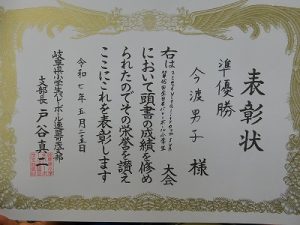 表彰状
準優勝
今渡男子 様
右は 大会
において頭書の成績を修め
られたのでその栄誉を讃え
ここにこれを表彰します
令和七年五月二五日
岐阜県小学生バレーボール連盟可茂支部
支部長 戸谷真二